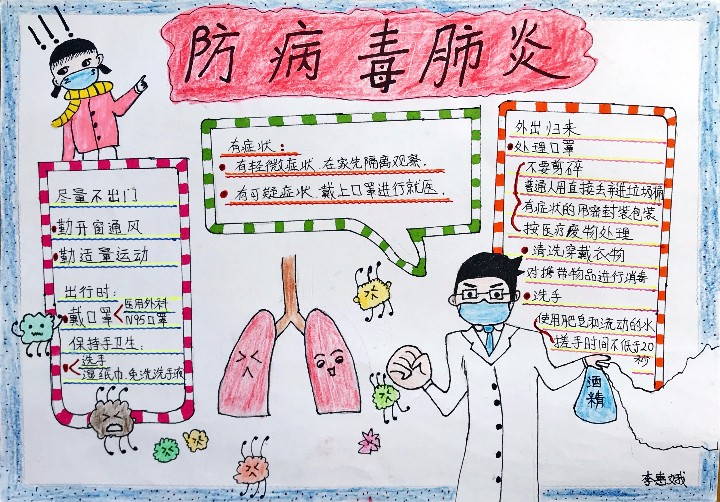 防病毒肺炎
尽量不出门
勤开窗通风
勤适量运动
出行时:
戴口罩 医用外科
N95口罩
保持手卫生:
洗手
湿纸巾、免洗洗手液
有症状:
有轻微症状,在家先隔离观察.
有可疑症状,戴上口罩进行就医.
外出归来
处理口罩
不要剪碎
普通人用直接丢弃进垃圾桶
有症状的用密封装包装
按医疗废物处理
清洗穿戴衣物
对携带物品进行消毒
洗手
使用肥皂和流动的水
搓手时间不低于20
秒
酒
精
李惠娥